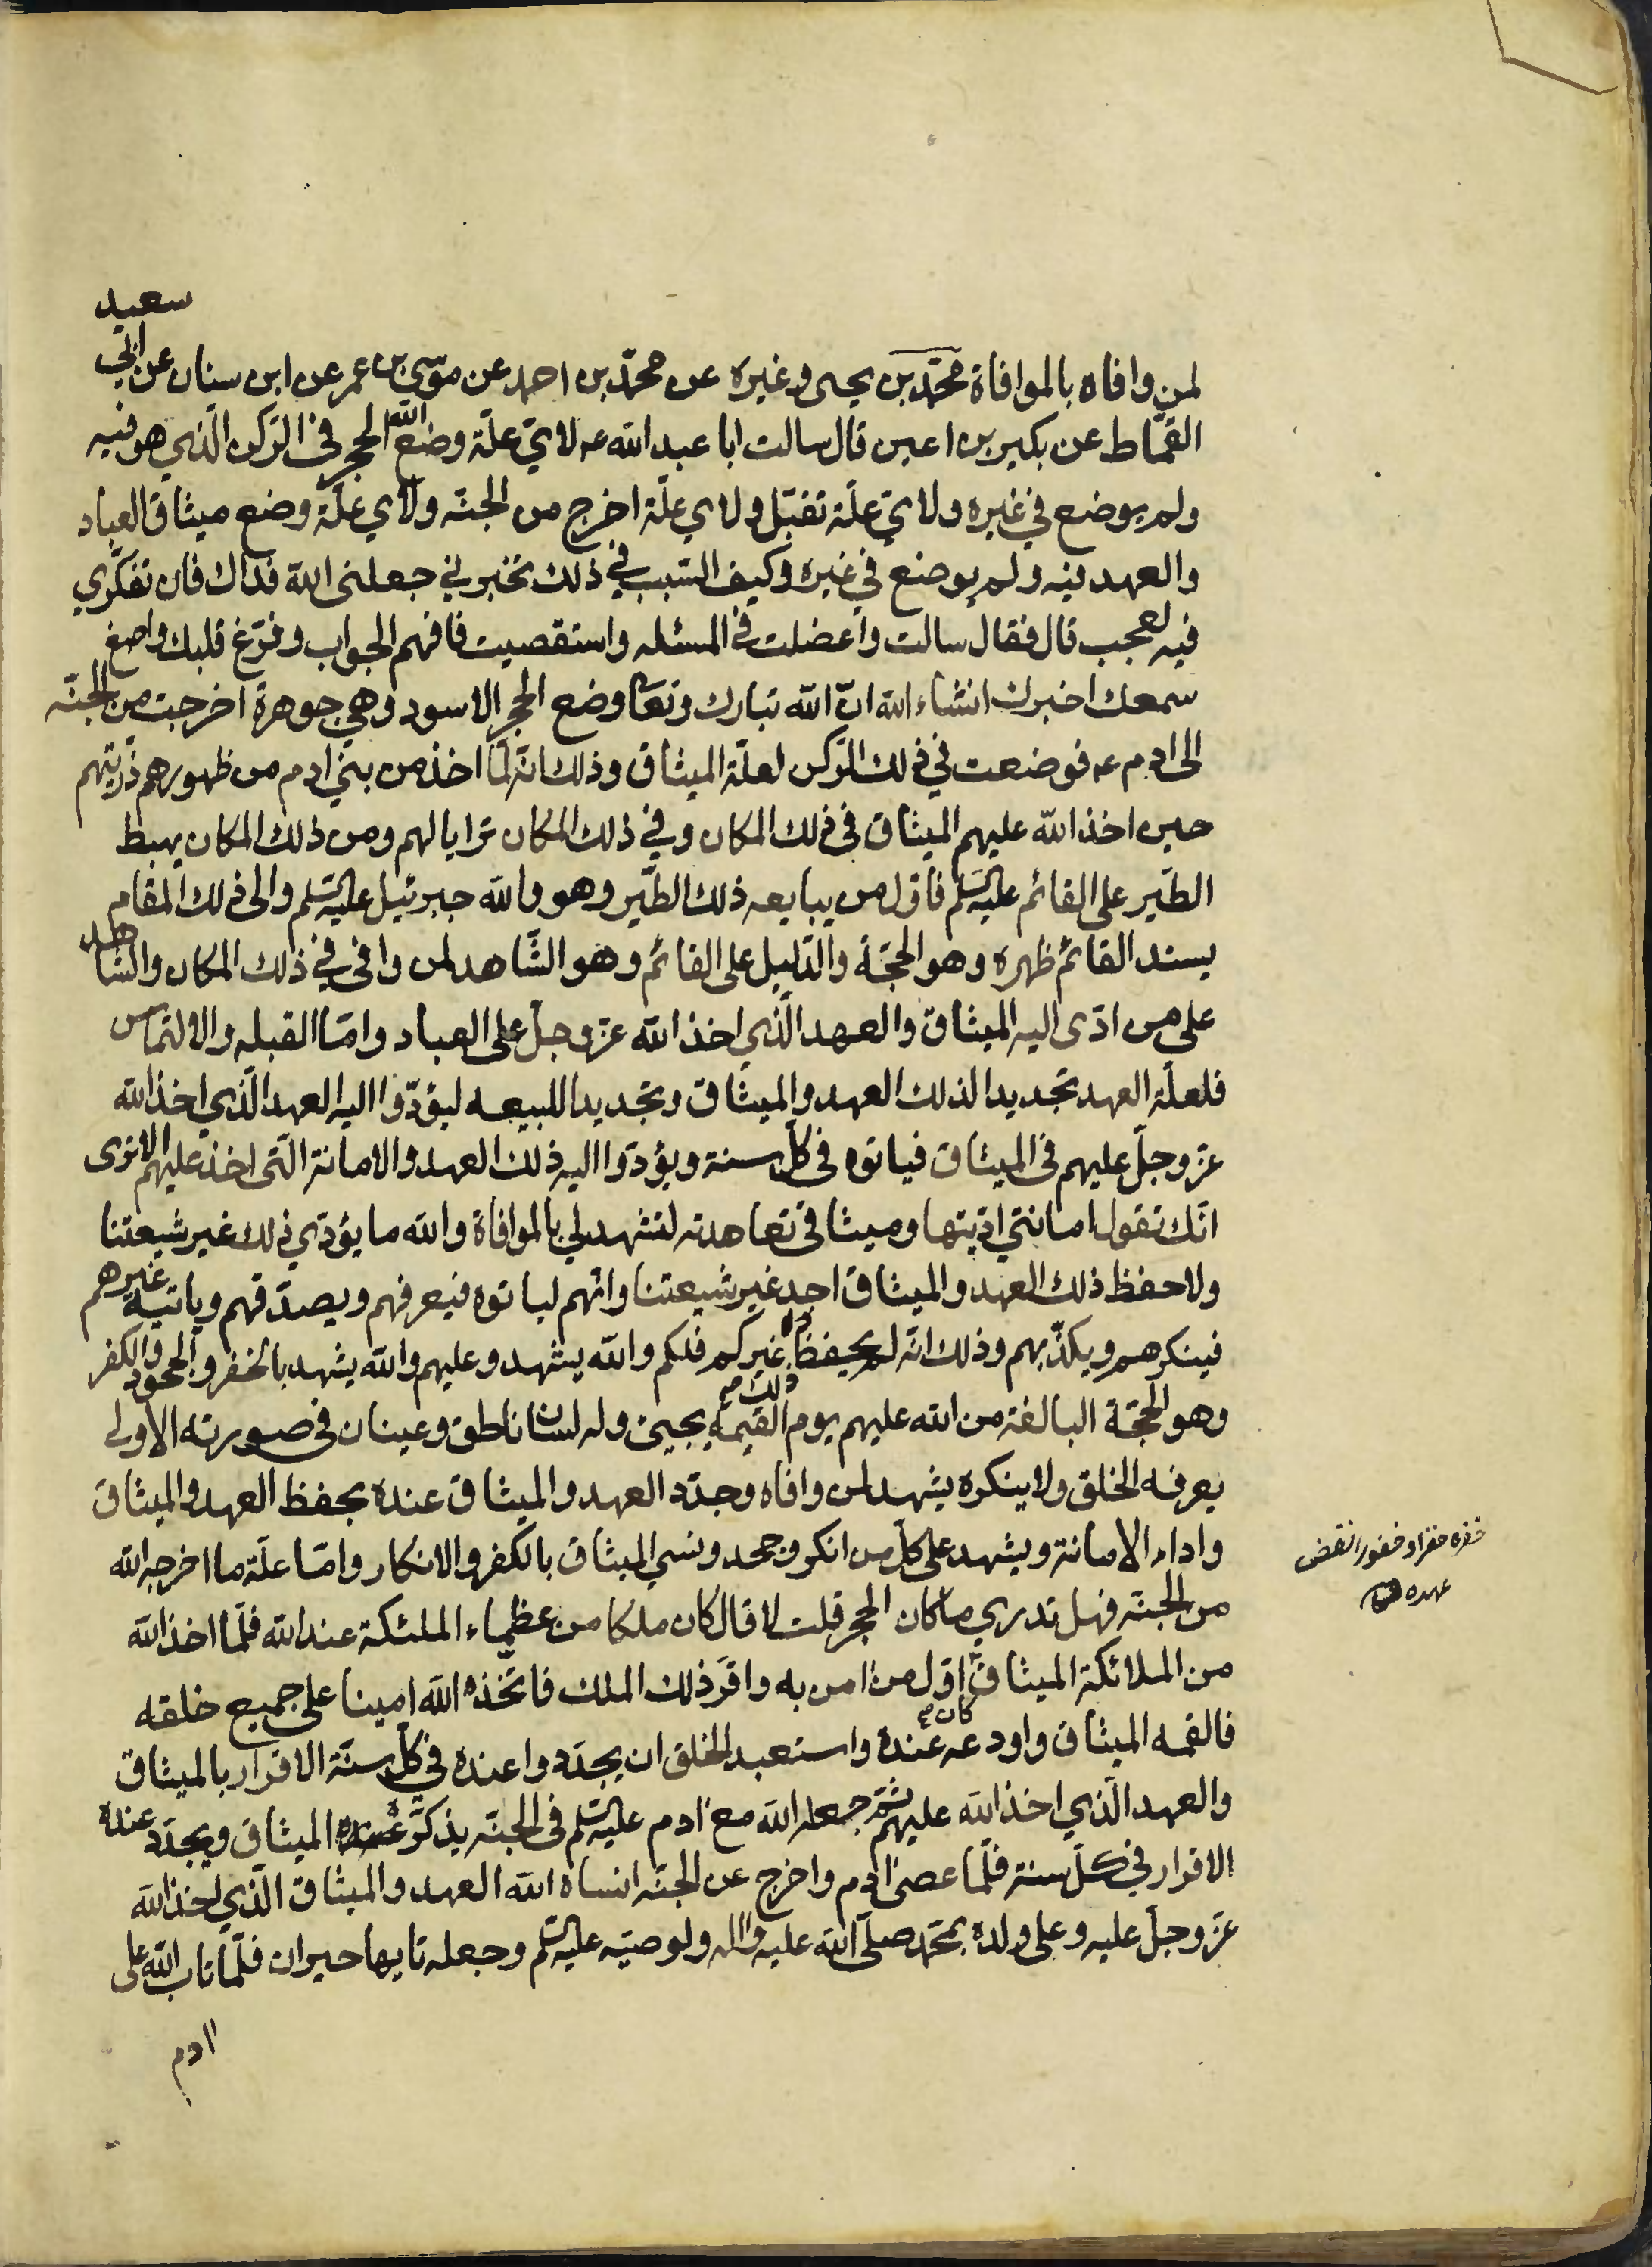 لمن وافاه بالموافاة محمّد بن يحيى وغيره عن محمّد بن احمد عن موسى بن عمر عن ابن سنان عن ابي سعيد
القمّاط عن بكير بن اعين قال سالت ابا عبد الله عه لايّ علّة وضع الله الحجر في الرّكن الّذي هو فيه
ولم يوضع في غيره ولايّ علّة تقبّل ولاي علّة اخرج من الجنّه ولاي علّة وضع ميثاق العباد
والعهد فيه ولم يوضع في غيره وكيف السّبب في ذلك تخبرني جعلني الله فداك فان تفكّري
فيه لعجب قال فقال سالت واعضلت في المسئله واستقصيت فافهم الجواب وفرّغ قلبك واصغ
سمعك اخبرك انشاء الله انّ الله تبارك وتعا وضع الحجر الاسود وهي جوهرة اخرجت من الجنّه
الى ادم عه فوضعت في ذلك الرّكن لعلّة الميثاق وذلك انّه لمّا اخذ من بني ادم من ظهورهم ذرّيتهم
حين اخذ الله عليهم الميثاق في ذلك المكان وفي ذلك المكان ترايا لهم ومن ذلك المكان يهبط
الطّير على القائم عليه السّلم فاوّل من يبايعه ذلك الطّير وهو والله جبرئيل عليه السّلم والى ذلك المقام
يسند القائم ظهره وهو الحجّة والدّليل على القائم وهو الشّاهد لمن وافى في ذلك المكان والشّاهد
على من ادّى اليه الميثاق والعهد الّذي اخذ الله عزّ وجلّ على العباد وامّا القبله والالتماس
فلعلّة العهد تجديدا لذلك العهد والميثاق وتجديدا للبيعه ليؤدّوا اليه العهد الّذي اخذ الله
عزّ وجلّ عليهم في الميثاق فياتوه في كلّ سنة ويؤدّوا اليه ذلك العهد والامانة الّتي اخذ عليهم الا ترى
انّك تقول امانتي ادّيتها وميثاقي تعاهدته لتشهد لي بالموافاة والله ما يؤدّي ذلك غير شيعتنا
ولا حفظ ذلك العهد والميثاق احد غير شيعتنا وانّهم لياتوه فيعرفهم ويصدّقهم وياتيه غيرهم
فينكرهم ويكذّبهم وذلك انّه لم يحفظ ذلك غيركم فلكم والله يشهد وعليهم والله يشهد بالخفر والجحود والكفر
وهو الحجّة البالغة من الله عليهم يوم القيمة يجيئ وله لسان ناطق وعينان في صورته الاولى
يعرفه الخلق ولا ينكره يشهد لمن وافاه وجدّد العهد والميثاق عنده بحفظ العهد والميثاق
واداء الامانة ويشهد على كلّ من انكر وجحد ونسي الميثاق بالكفر والانكار وامّا علّة ما اخرجه الله
من الجنّه فهل تدري ما كان الحجر قلت لا قال كان ملكا من عظماء الملئكة عند الله فلمّا اخذ الله
من الملائكة الميثاق كان اوّل من امن به واقرّ ذلك الملك فاتّخذه الله امينا على جميع خلقه
فالقمه الميثاق واودعه عنده واستعبد الخلق ان يجدّدوا عنده في كلّ سنّة الاقرار بالميثاق
والعهد الّذي اخذ الله عليهم ثمّ جعله الله مع ادم عليه السّلم في الجنّه يذكّره الميثاق ويجدّد عنده
الاقرار في كلّ سنة فلمّا عصى ادم واخرج عن الجنّه انساه الله العهد والميثاق الّذي اخذ الله
عزّ وجلّ عليه وعلى ولده بمحمّد صلّى الله عليه واله ولوصيّه عليه السّلم وجعله تايها حيران فلمّا تاب الله على
ادم
خفره خفرا وخفورا نقض
عهده